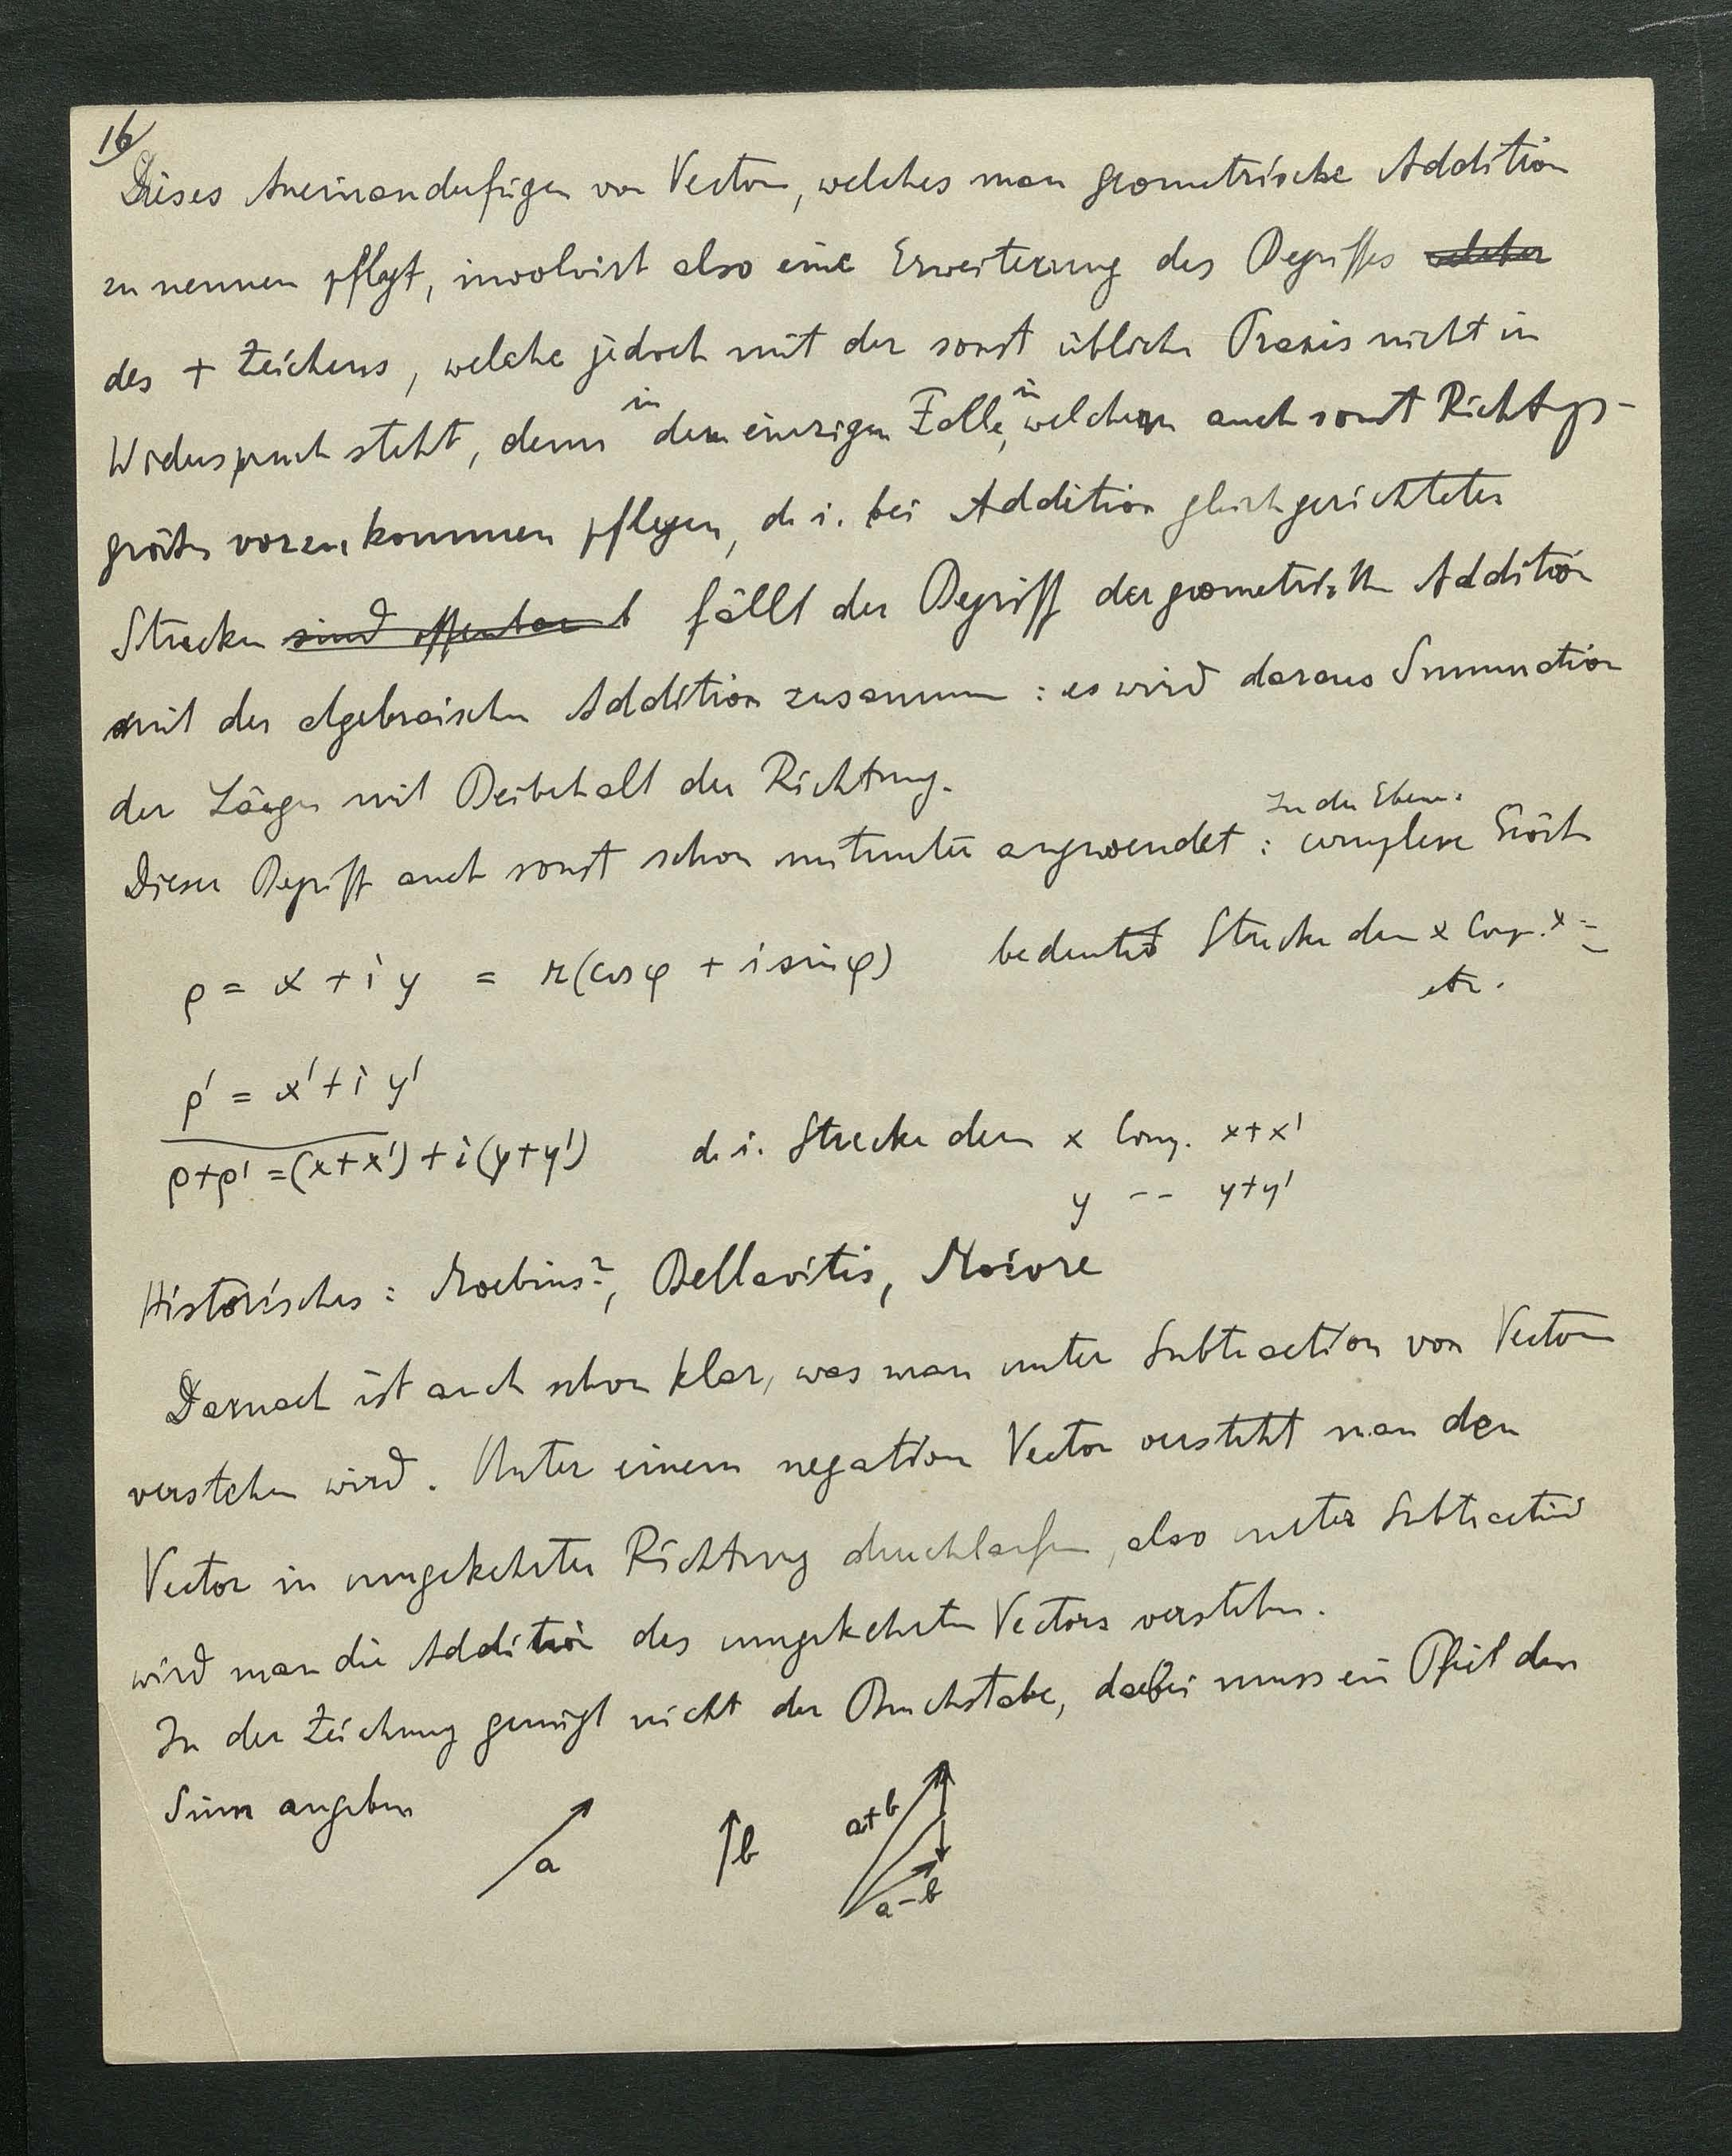 16
Dieses Aneinanderfügen von Vectoren, welches man geometrische Addition
zu nennen pflegt, involvirt also eine Erweiterung des Begriffes welcher
des + Zeichens, welche jedoch mit der sonst üblichen Praxis nicht in
Widerspruch steht, denn in dem einzigen Falle, in welchem auch sonst Richtgs-
größen vorzukommen pflegen, d. i. bei Addition gleichgerichteter
Strecken sind offenbar fällt der Begriff der geometrischen Addition
mit der algebraischen Addition zusammen : es wird daraus Summation
der Längen mit Beibehalt der Richtung.
In der Ebene:
Dieser Begriff auch sonst schon mitunter angewendet : complexe Größen
ρ = x + i y = r(cos φ + i sin φ) bedeutet Strecke deren x Comp. x =
etc.
ρ' = x' + i y'
ρ+ρ' = (x+x') + i (y+y') d. i. Strecke deren x Comp. x+x'
y -- y+y'
Historisches : Moebius?, Bellavitis, Moivre
Darnach ist auch schon klar, was man unter Subtraction von Vectoren
verstehen wird. Unter einem negativen Vector versteht man den
Vector in umgekehrter Richtung durchlaufen, also unter Subtraction
wird man die Addition des umgekehrten Vectors verstehen.
In der Zeichnung genügt nicht der Buchstabe, dabei muss ein Pfeil den
Sinn angeben
a b a+b a-b